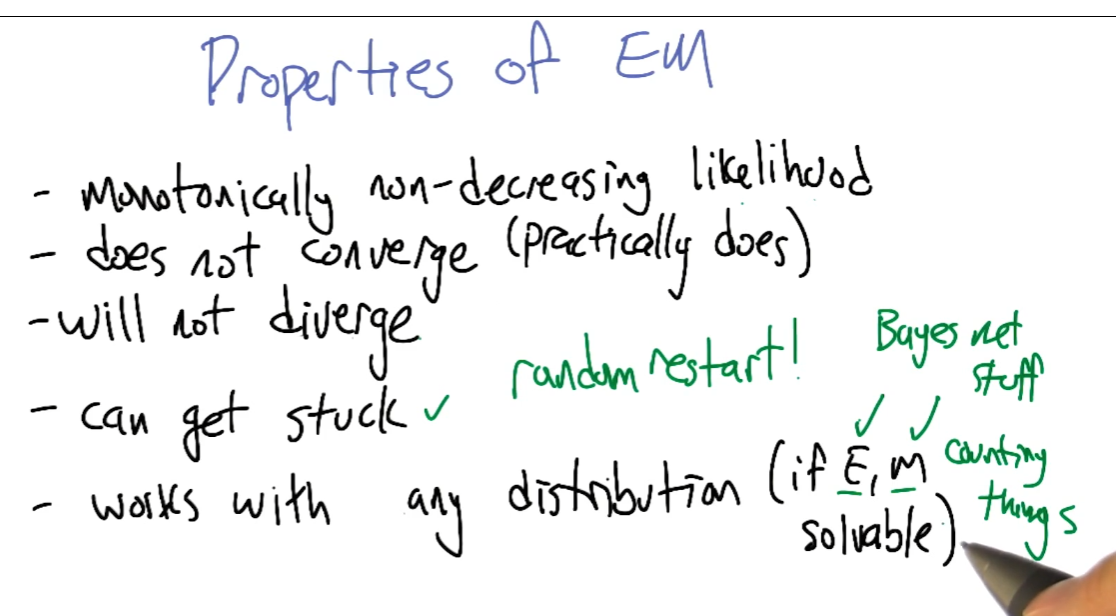 Properties of EM
- monotonically non-decreasing likelihood
- does not converge (practically does)
- will not diverge
random restart!
- can get stuck ✓
Bayes net
stuff
✓ ✓
- works with any distribution (if E, M
solvable)
counting
things